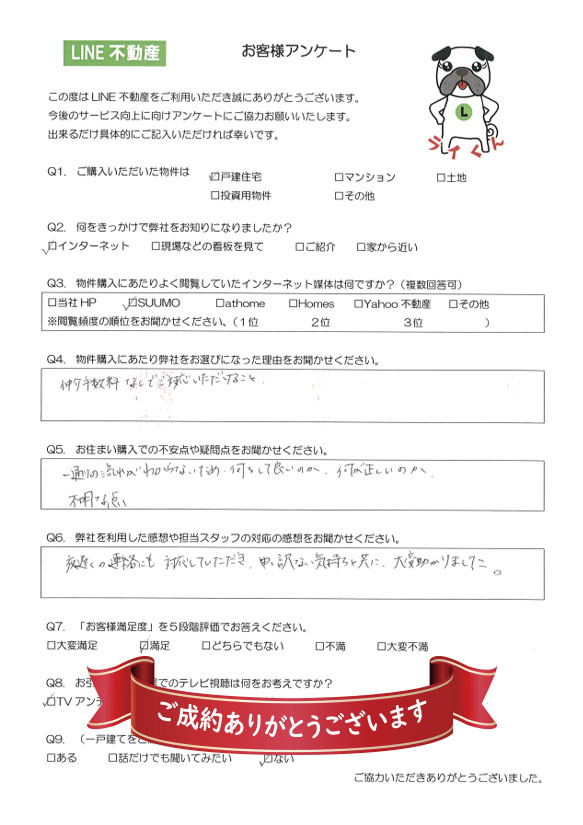 LINE 不動産
お客様アンケート
この度は LINE 不動産をご利用いただき誠にありがとうございます。
今後のサービス向上に向けアンケートにご協力お願いいたします。
出来るだけ具体的にご記入いただければ幸いです。
L
ライくん
Q1. ご購入いただいた物件は ☑戸建住宅 □マンション □土地
□投資用物件 □その他
Q2. 何をきっかけで弊社をお知りになりましたか？
☑インターネット □現場などの看板を見て □ご紹介 □家から近い
Q3. 物件購入にあたりよく閲覧していたインターネット媒体は何ですか？（複数回答可）
□当社 HP ☑SUUMO □athome □Homes □Yahoo 不動産 □その他
※閲覧頻度の順位をお聞かせください、（1位 2位 3位 ）
Q4. 物件購入にあたり弊社をお選びになった理由をお聞かせください。
仲介手数料なしでご対応いただけること.
Q5. お住まい購入での不安点や疑問点をお聞かせください。
一通りの流れがわからないため、何をして良いのか、何が正しいのか、
不明な点い
Q6. 弊社を利用した感想や担当スタッフの対応の感想をお聞かせください。
夜遅くの連絡にも対応していただき、申し訳ない気持ちと共に、大変助かりました。
Q7. 「お客様満足度」を5段階評価でお答えください。
□大変満足 ☑満足 □どちらでもない □不満 □大変不満
Q8. お引 でのテレビ視聴は何をお考えですか？
☑TV アンテ
ご成約ありがとうございます
Q9. （一戸建てをご
□ある □話だけでも聞いてみたい ☑ない
ご協力いただきありがとうございました。